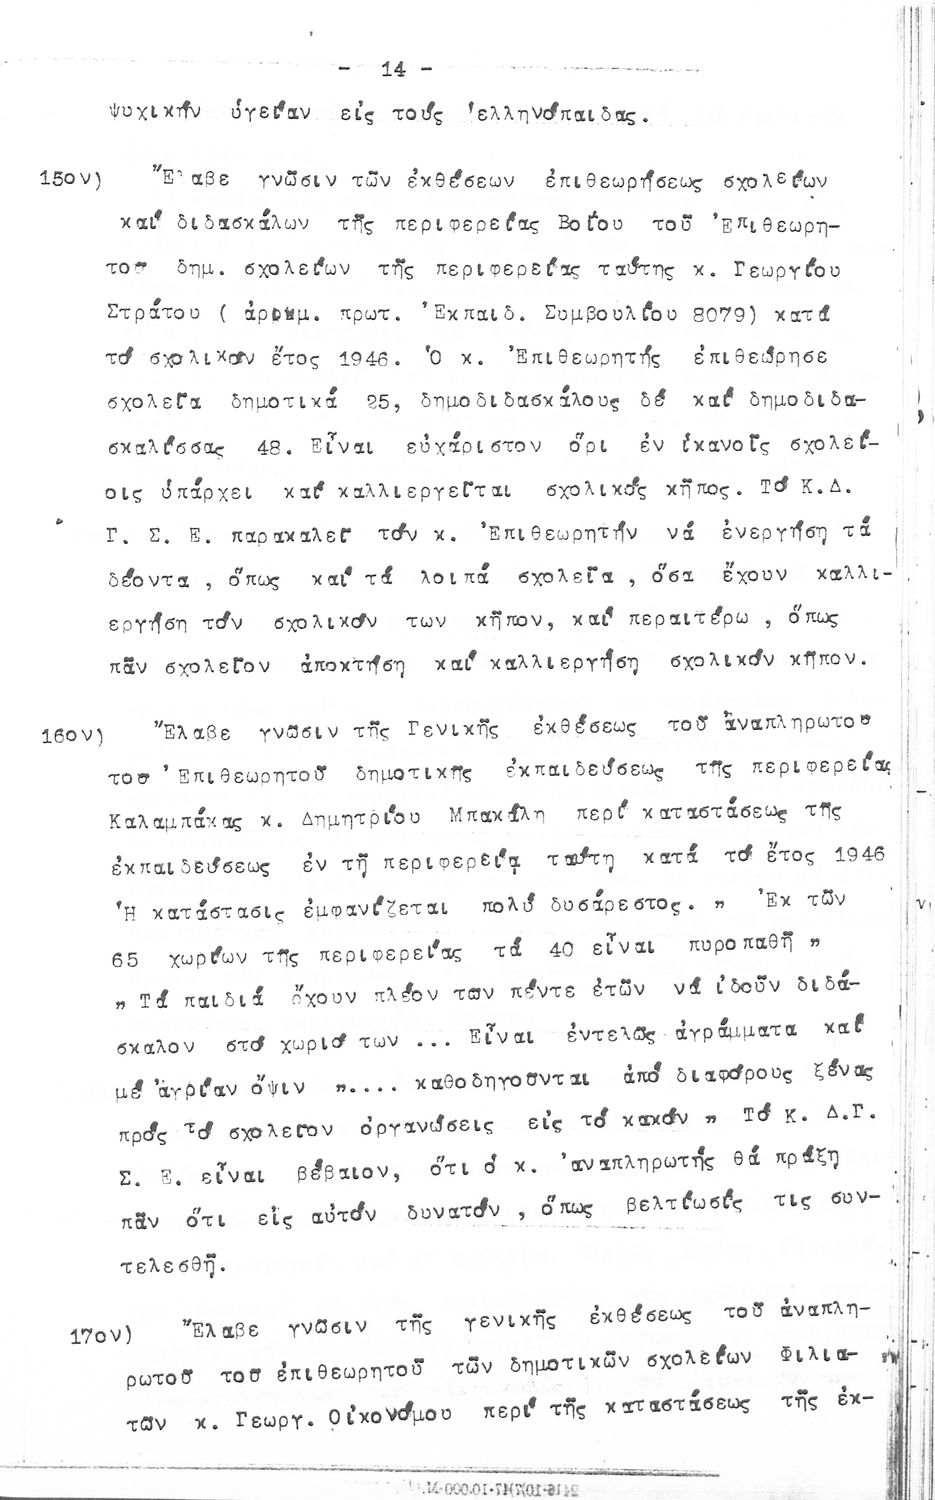 - 14 -
ψυχικήν ὑγείαν εἰς τούς 'ελληνόπαιδας.
15ον) "Ελαβε γνῶσιν τῶν ἐκθέσεων ἐπιθεωρήσεως σχολείων
καί διδασκάλων τῆς περιφερείας Βοΐου τοῦ Ἐπιθεωρη-
τοῦ δημ. σχολείων τῆς περιφερείας ταύτης κ. Γεωργίου
Στράτου ( ἀριθμ. πρωτ. Ἐκπαιδ. Συμβουλίου 8079) κατά
τό σχολικόν ἔτος 1946. Ὁ κ. Ἐπιθεωρητής ἐπιθεώρησε
σχολεῖα δημοτικά 25, δημοδιδασκάλους δέ καί δημοδιδα-
σκαλίσσας 48. Εἶναι εὐχάριστον ὅρι ἐν ἱκανοῖς σχολεί-
οις ὑπάρχει καί καλλιεργεῖται σχολικός κῆπος. Τό Κ.Δ.
Γ. Σ. Ε. παρακαλεῖ τόν κ. Ἐπιθεωρητήν νά ἐνεργήση τά
δέοντα , ὅπως καί τά λοιπά σχολεῖα , ὅσα ἔχουν καλλι-
εργήση τόν σχολικόν των κῆπον, καί περαιτέρω , ὅπως
πᾶν σχολεῖον ἀποκτήση καί καλλιεργήση σχολικόν κῆπον.
16ον) "Ελαβε γνῶσιν τῆς Γενικῆς ἐκθέσεως τοῦ ἀναπληρωτοῦ
τοῦ Ἐπιθεωρητοῦ δημοτικῆς ἐκπαιδεύσεως τῆς περιφερείας
Καλαμπάκας κ. Δημητρίου Μπακάλη περί καταστάσεως τῆς
ἐκπαιδεύσεως ἐν τῇ περιφερείᾳ ταύτη κατά τό ἔτος 1946
Ἡ κατάστασις ἐμφανίζεται πολύ δυσάρεστος. " Ἐκ τῶν
65 χωρίων τῆς περιφερείας τά 40 εἶναι πυροπαθῆ "
" Τά παιδιά ἔχουν πλέον των πέντε ἐτῶν νά ἰδοῦν διδά-
σκαλον στό χωριό των ... Εἶναι ἐντελῶς ἀγράμματα καί
μέ ἀγρίαν ὄψιν ".... καθοδηγοῦνται ἀπό διαφόρους ξένας
πρός τό σχολεῖον ὀργανώσεις εἰς τό κακόν " Τό Κ. Δ.Γ.
Σ. Ε. εἶναι βέβαιον, ὅτι ὁ κ. ἀναπληρωτής θά πράξη
πᾶν ὅτι εἰς αὐτόν δυνατόν , ὅπως βελτίωσίς τις συν-
τελεσθῇ.
17ον) "Ελαβε γνῶσιν τῆς γενικῆς ἐκθέσεως τοῦ ἀναπλη-
ρωτοῦ τοῦ ἐπιθεωρητοῦ τῶν δημοτικῶν σχολείων Φιλια-
τῶν κ. Γεωργ. Οἰκονόμου περί τῆς καταστάσεως τῆς ἐκ-